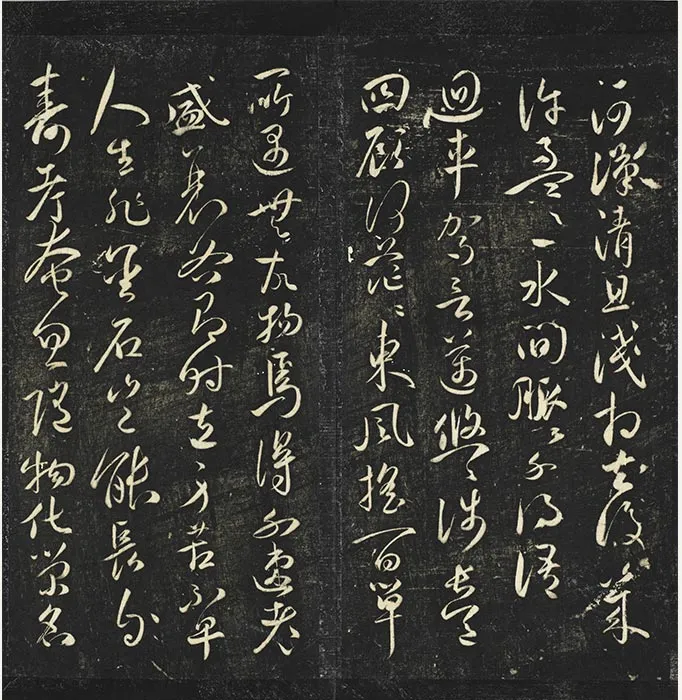 河漢清且淺相去復幾
許盈〻一水間脈〻不得語
迴車駕言邁悠〻涉長道
四顧何茫〻東風搖百草
所遇無故物焉得不速老
盛衰各有時立身苦不早
人生非金石豈能長
壽考奄忽隨物化榮名